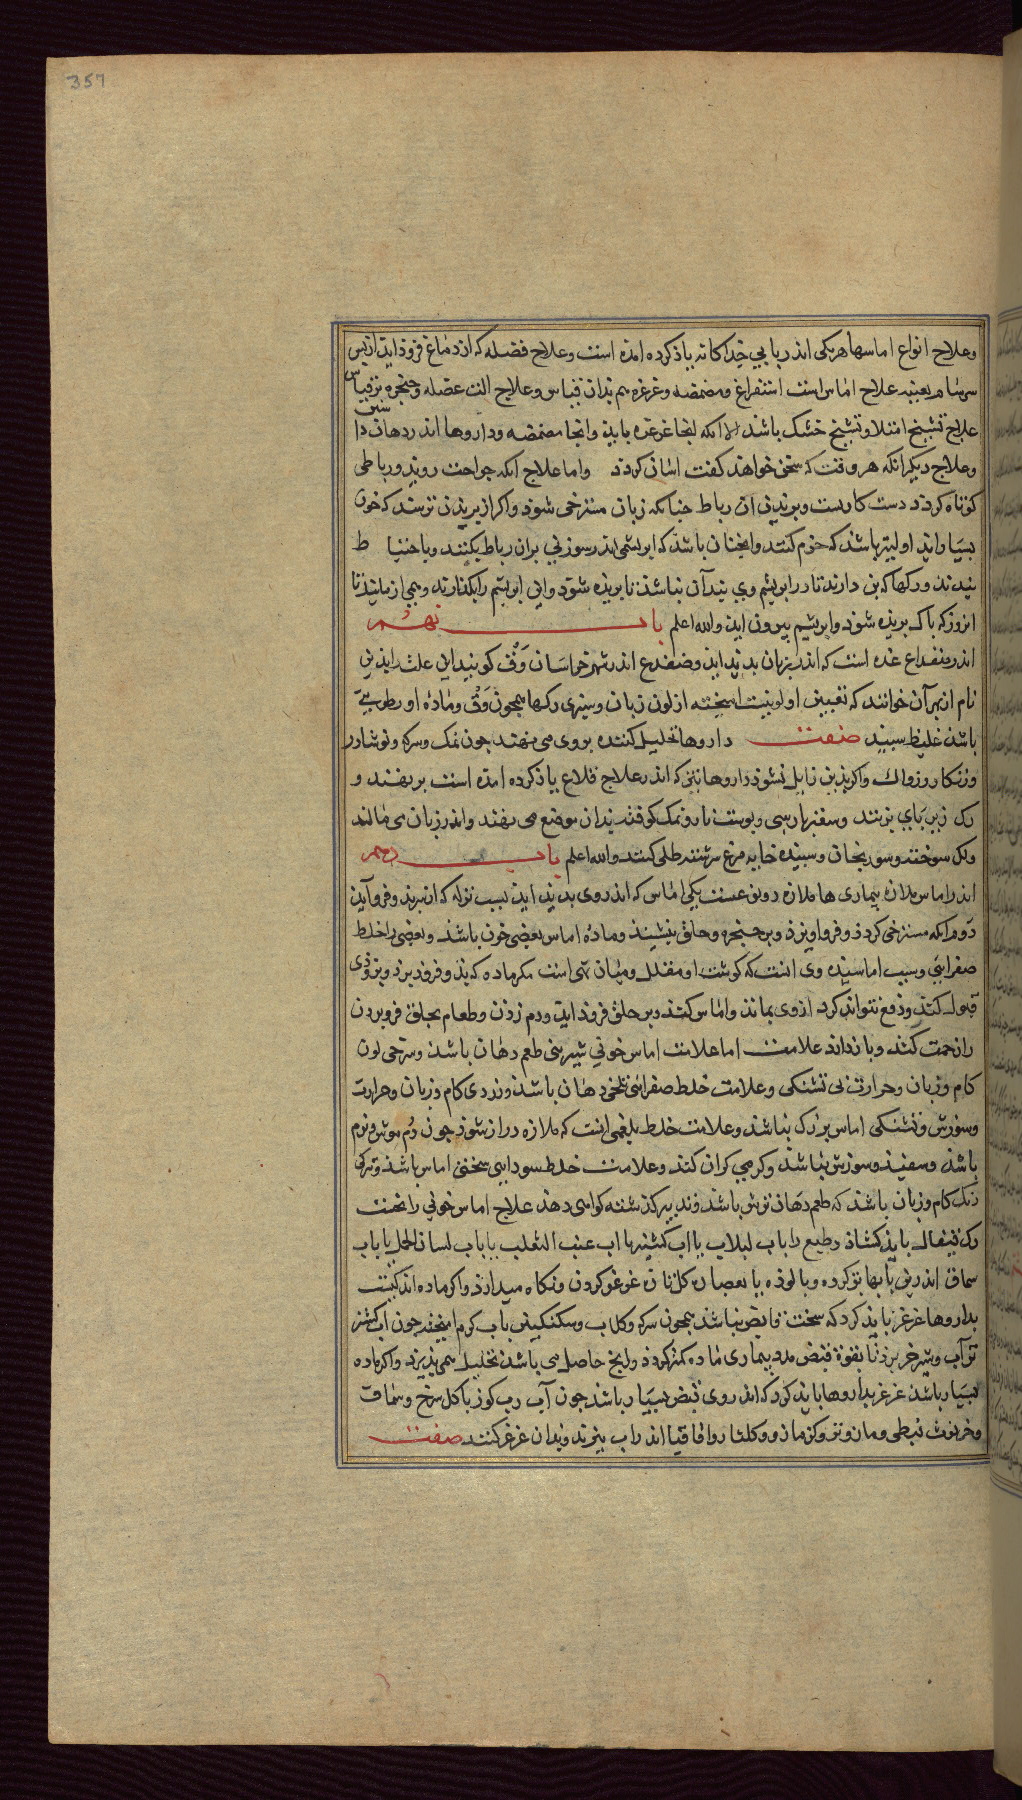 357
وعلاج انواع اماسها هریکی اندر بابی جداکانه یاذ کرده امده است وعلاج فضله که از دماغ فروذ ایذ ازپس
سرسام بعینه علاج اماس است استفراغ ومضمضه وغرغره هم بذان قیاس وعلاج الت عضله وحنجره برقیاس
علاج تشنج امتلا وتشنج خشک باشذ الا انکه اینجا غرغره بایذ وانجا مضمضه وداروها اندر دهان دا
شتن
وعلاج دیکر انکه هر وقت که سخن خواهذ کفت اسان کردذ واما علاج انکه جراحت رویذ ورباطی
کوتاه کردذ دست کاریست وبریذن ان رباط چنانکه زبان مسترخی شوذ واکر از بریذن ترسذ که خون
بسیار ایذ اولیتر باشذ که خزم کنند واینچنان باشذ که ابریشم اندر سوزنی بران رباط بکنند وباحتیا ط
ببندند ورکها که بن دارند تا در ابریشم وی بندآن نباشذ تا بریذه شوذ واین ابریشم رابکذارند وهمی ازمایند تا
انروز که باک بریذه شوذ وابریشم بیرون ایذ والله اعلم باب نهم
اندر ضفدع غده است که اندر زبان بدیذ ایذ وضفدع اندر شهر خراسان وَق کویند این علت را بذین
نام از بهر آن خوانند که تغییر او لونیست امیخته از لون زبان وسبزی رکها همچون وق ومادهٔ او رطوبتی
باشذ غلیظ سبیذ صفت داروها تحلیل کننده بروی می نهند چون نمک وسرکه ونوشادر
وزنکار وزواک واکر بذین زایل نشوذ داروها تیز که اندر علاج قلاع یاذ کرده امذه است برنهند و
رک زیر زبان بزنند وسعتر پارسی وپوست نار ونمک کوفته بذان موضع می نهند واندر زبان می مالند
ونمک سوخته وسورنجان وسبیذه خایه مرغ سرشته طلی کنند والله اعلم باب دهم
اندر اماس ملازه بیماری ها ملازه دو نوعست یکی اماس که اندروی بدیذ ایذ بسبب نزله که از سر بذو فروآیذ
دوم انکه مسترخی کردذ وفرو اویزذ وبرحنجره وحلق نشیند ومادهٔ اماس بعضی خون باشذ وبعضی را خلط
صفرایی وسبب اماسیذن وی انست که کوشت او متخلل ومیان تهی است هر ماده که بذو فروذ یرذ ویزوذی
قبول کنذ ودفع نتواند کرد اندوی بماند واماس کند وبر حلق فروذ ایذ ودم زذن وطعام بحلق فروبردن
را زحمت کند وباز دارد علامت اما علامت اماس خونی شیرینی طعم دهان باشذ وسرخی لون
کام وزبان وحرارت بی تشنکی وعلامت خلط صفرائی تلخی دهان باشذ وزردی کام وزبان وحرارت
وسوزش وتشنکی اماس بزرک نباشذ وعلامت خلط بلغمی انست که ملازه دراز شوذ چون دم موش ونرم
باشذ وسفیذ وسوزش نباشذ وکرمی کران کند وعلامت خلط سودایی سختی اماس باشذ وتیرکی
رنک کام وزبان باشذ که طعم دهان ترش باشذ وتدبیر کذشته کواهی دهذ علاج اماس خونی را نخست
رک قیفال بایذ کشاذ وطبع را باب لبلاب یا اب کشنیز یا اب عنب الثعلب یا باب لسان الحمل یا باب
سماق اندرین آبها تر کرده وپالوذه یا بعصاره کل نار غرغره کردن ونکاه میدارذ واکر ماده اندکیست
بداروها غرغره بایذ کرد که سخت قابض نباشذ همچون سرکه وکلاب وسکنکبین بآب کرم امیخته چون آب کشنز
تر آب وشیر خر بوذ تا بقوة قبض مدد بیماری ماده کمتر کردذ وانج حاصل می باشذ تحلیل همی پذیرذ واکر ماده
بسیار باشذ غرغره بداروها بایذ کرد که اندروی قبض بسیار باشذ چون آب رب کوز باکل سرخ وسماق
وخرنوب نبطی ومازو تر وکزمازو وکلنار واقاقیا اندر اب بپزند وبذان غرغره کنند صفت